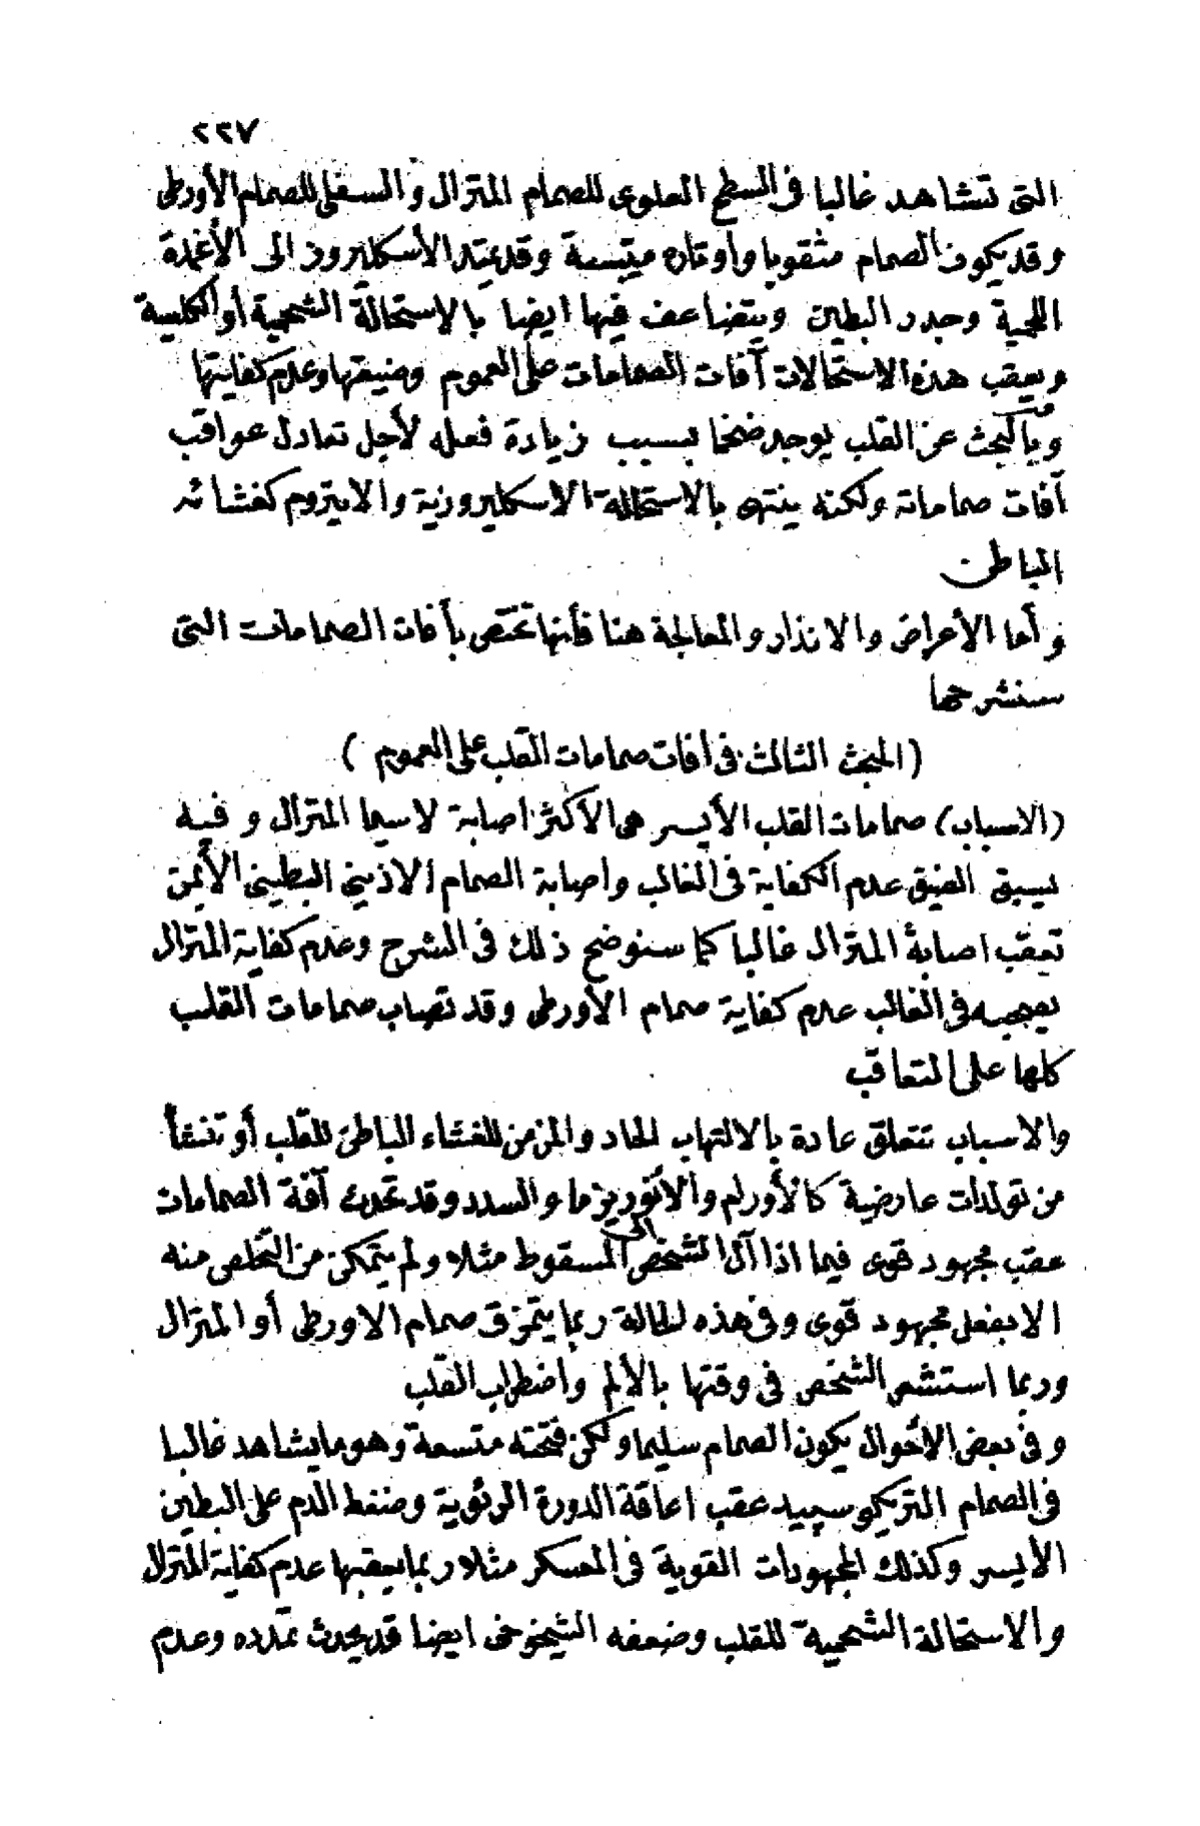 ٢٢٧
التى تشاهد غالبا فى السطح العلوى للصمام المترال والسفلى للصمام الأورطى
وقد يكون الصمام مثقوبا وأوتاره متيبسة وقد يمتد الأسكليروز الى الأغمدة
اللحمية وجدر البطين ويتضاعف فيها ايضا بالاستحالة الشحمية أو الكلسية
ويعقب هذه الاستحالات آفات الصمامات على العموم وضيقها وعدم كفايتها
وبالبحث عن القلب يوجد ضخما بسبب زيادة فعله لأجل تعادل عواقب
آفات صماماته ولكنه ينتهى بالاستحالة الاسكليروزية والايتروم كغشائه
الباطن
وأما الأعراض والانذار والمعالجة هنا فأنها تختص بأفات الصمامات التى
سنشرحها
(المبحث الثالث فى أفات صمامات القلب على العموم)
(الاسباب) صمامات القلب الأيسر هى الأكثر اصابة لاسيما المترال وفيه
يسبق الضيق عدم الكفاية فى الغالب واصابة الصمام الاذينى البطينى الأيمن
تعقب اصابة المترال غالبا كما سنوضح ذلك فى الشرح وعدم كفاية المترال
يصحبه فى الغالب عدم كفاية صمام الأورطى وقد تصاب صمامات القلب
كلها على التعاقب
والاسباب تتعلق عادة بالالتهاب الحاد والمزمن للغشاء الباطن للقلب أو تنشأ
من تولدات عارضية كالأورام والأنوريزما والسدد وقد تحدث آفة الصمامات
عقب مجهود قوى فيما اذا آل الشخص الى السقوط مثلا ولم يتمكن من التخلص منه
الا بفعل مجهود قوى وفى هذه الحالة ربما يتمزق صمام الاورطى أو المترال
وربما استشعر الشخص فى وقتها بالألم واضطراب القلب
وفى بعض الأحوال يكون الصمام سليما ولكن فتحته متسعة وهو ما يشاهد غالبا
فى الصمام التريكوسبيد عقب اعاقة الدورة الرئوية وضغط الدم على البطين
الأيسر وكذلك المجهودات القوية فى العسكر مثلا ربما يعقبها عدم كفاية المترال
والاستحالة الشحمية للقلب وضعفه الشيخوخى ايضا قد يحدث تمدده وعدم